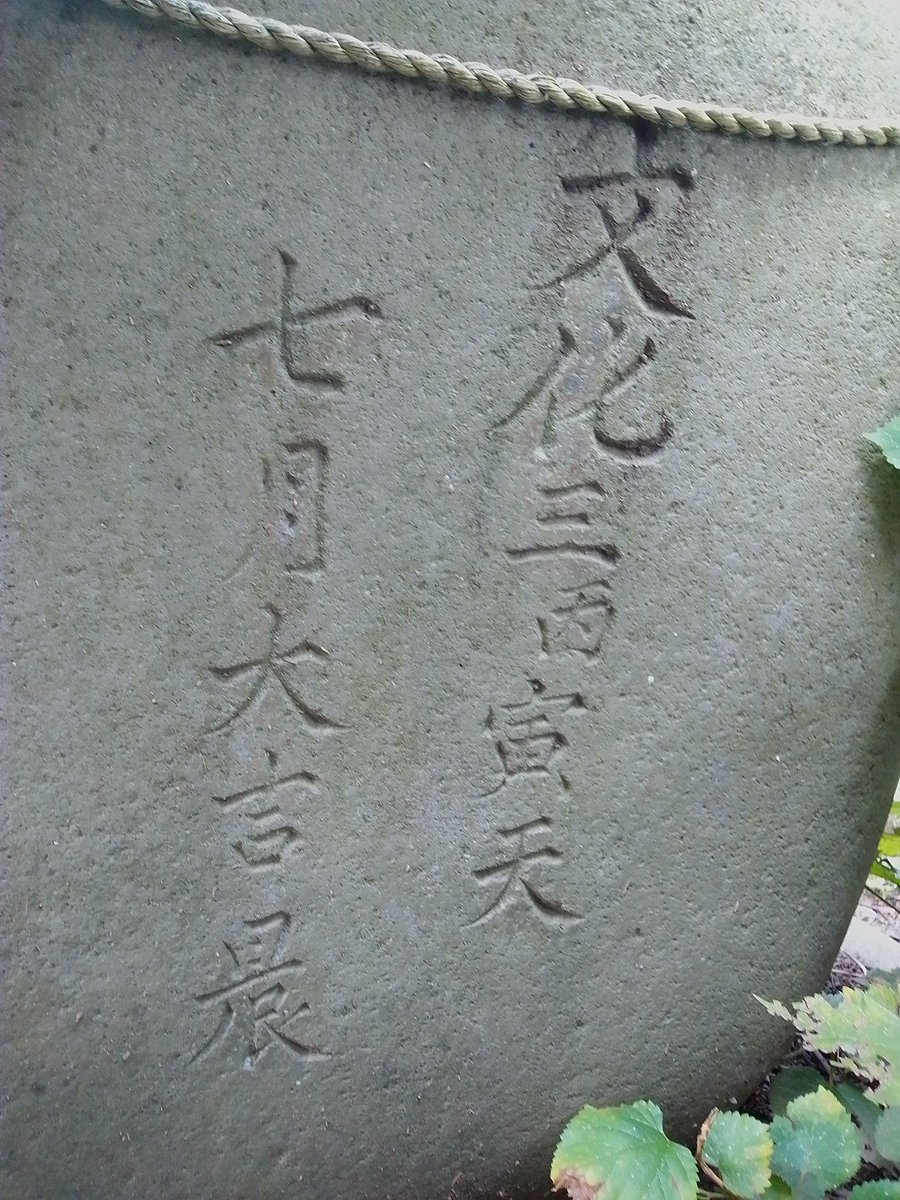 文化三丙寅天
七月大吉晨